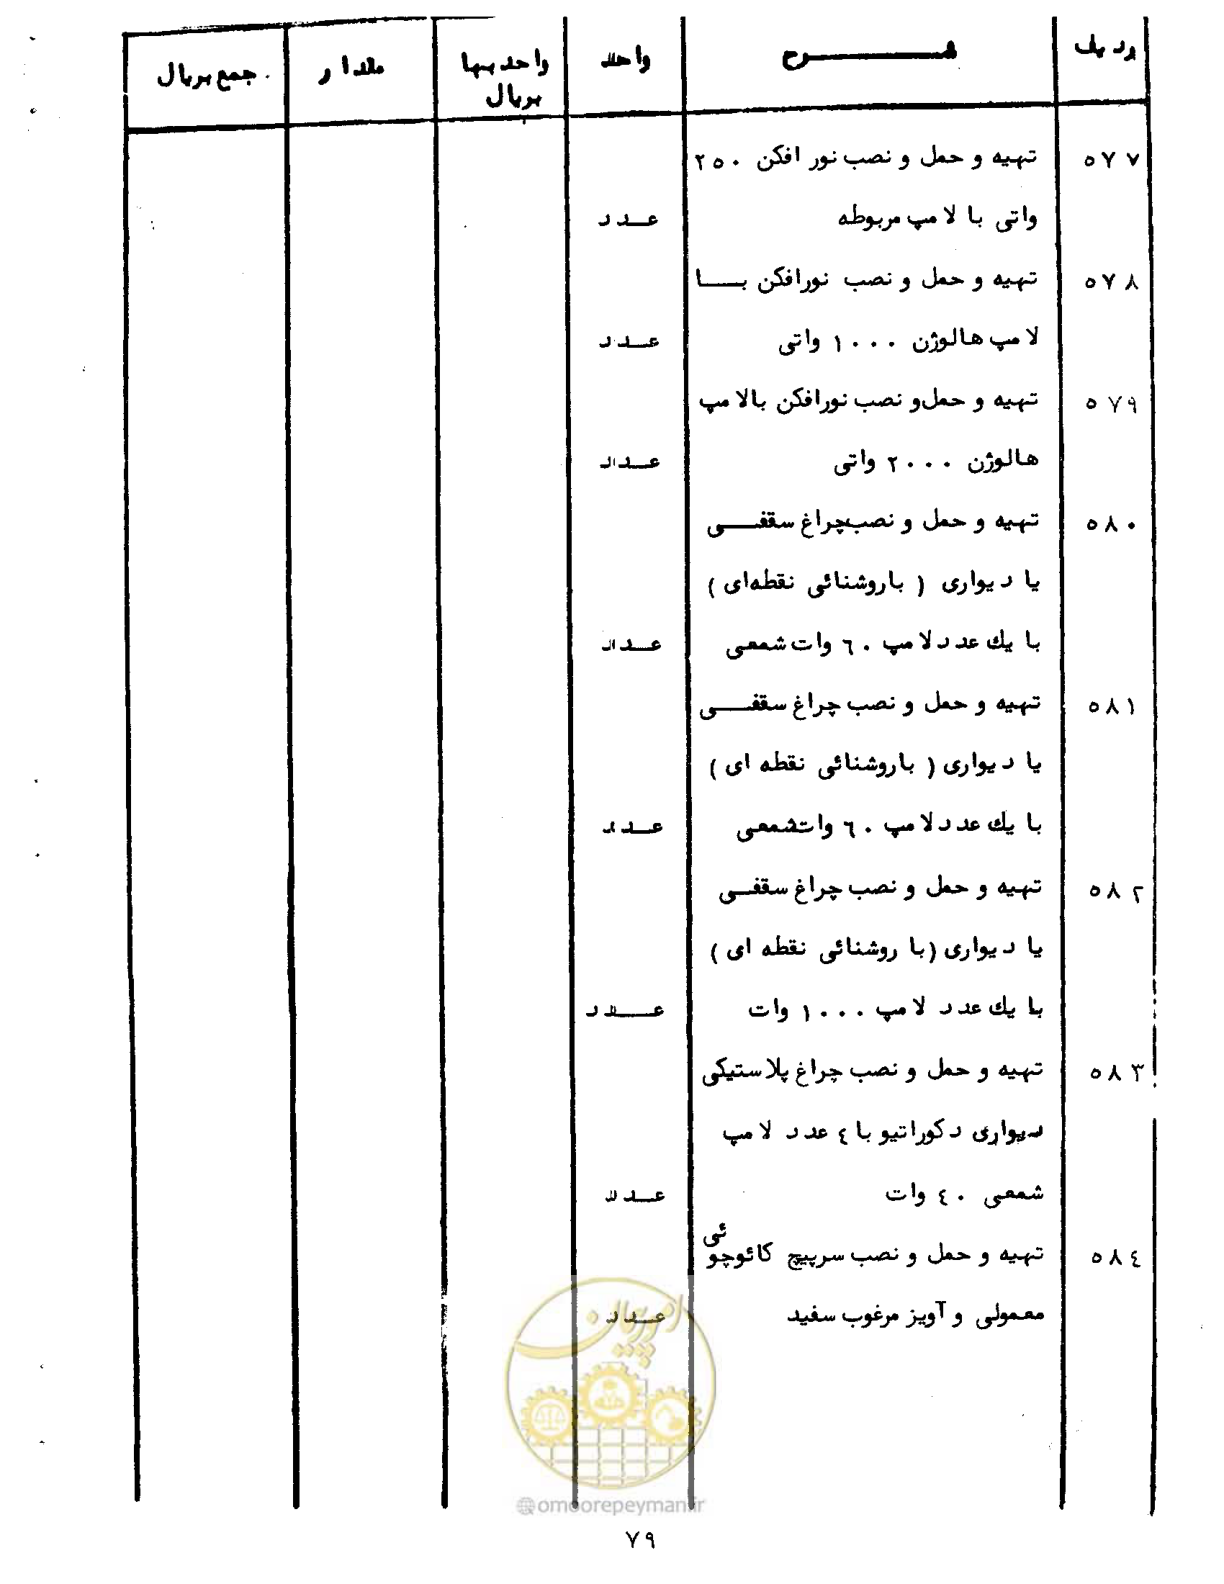 ردیف شرح واحد واحد بها مقدار جمع بریال
بریال
۵۷۷ تهیه و حمل و نصب نور افکن ۲۵۰
واتی با لامپ مربوطه عدد
۵۷۸ تهیه و حمل و نصب نورافکن با
لامپ هالوژن ۱۰۰۰ واتی عدد
۵۷۹ تهیه و حمل و نصب نورافکن بالامپ
هالوژن ۲۰۰۰ واتی عدد
۵۸۰ تهیه و حمل و نصب چراغ سقفی
یا دیواری ( باروشنائی نقطه‌ای )
با یك عدد لامپ ۶۰ وات شمعی عدد
۵۸۱ تهیه و حمل و نصب چراغ سقفی
یا دیواری ( باروشنائی نقطه ای )
با یك عدد لامپ ۶۰ وات شمعی عدد
۵۸۲ تهیه و حمل و نصب چراغ سقفی
یا دیواری (با روشنائی نقطه ای )
با یك عدد لامپ ۱۰۰۰ وات عدد
۵۸۳ تهیه و حمل و نصب چراغ پلاستیکی
دیواری دکوراتیو با ٤ عدد لامپ
شمعی ٤۰ وات عدد
۵۸٤ تهیه و حمل و نصب سرپیچ کائوچوئی
معمولی و آویز مرغوب سفید عدد
امور پیمان
@omoorepeyman.ir
۷۹